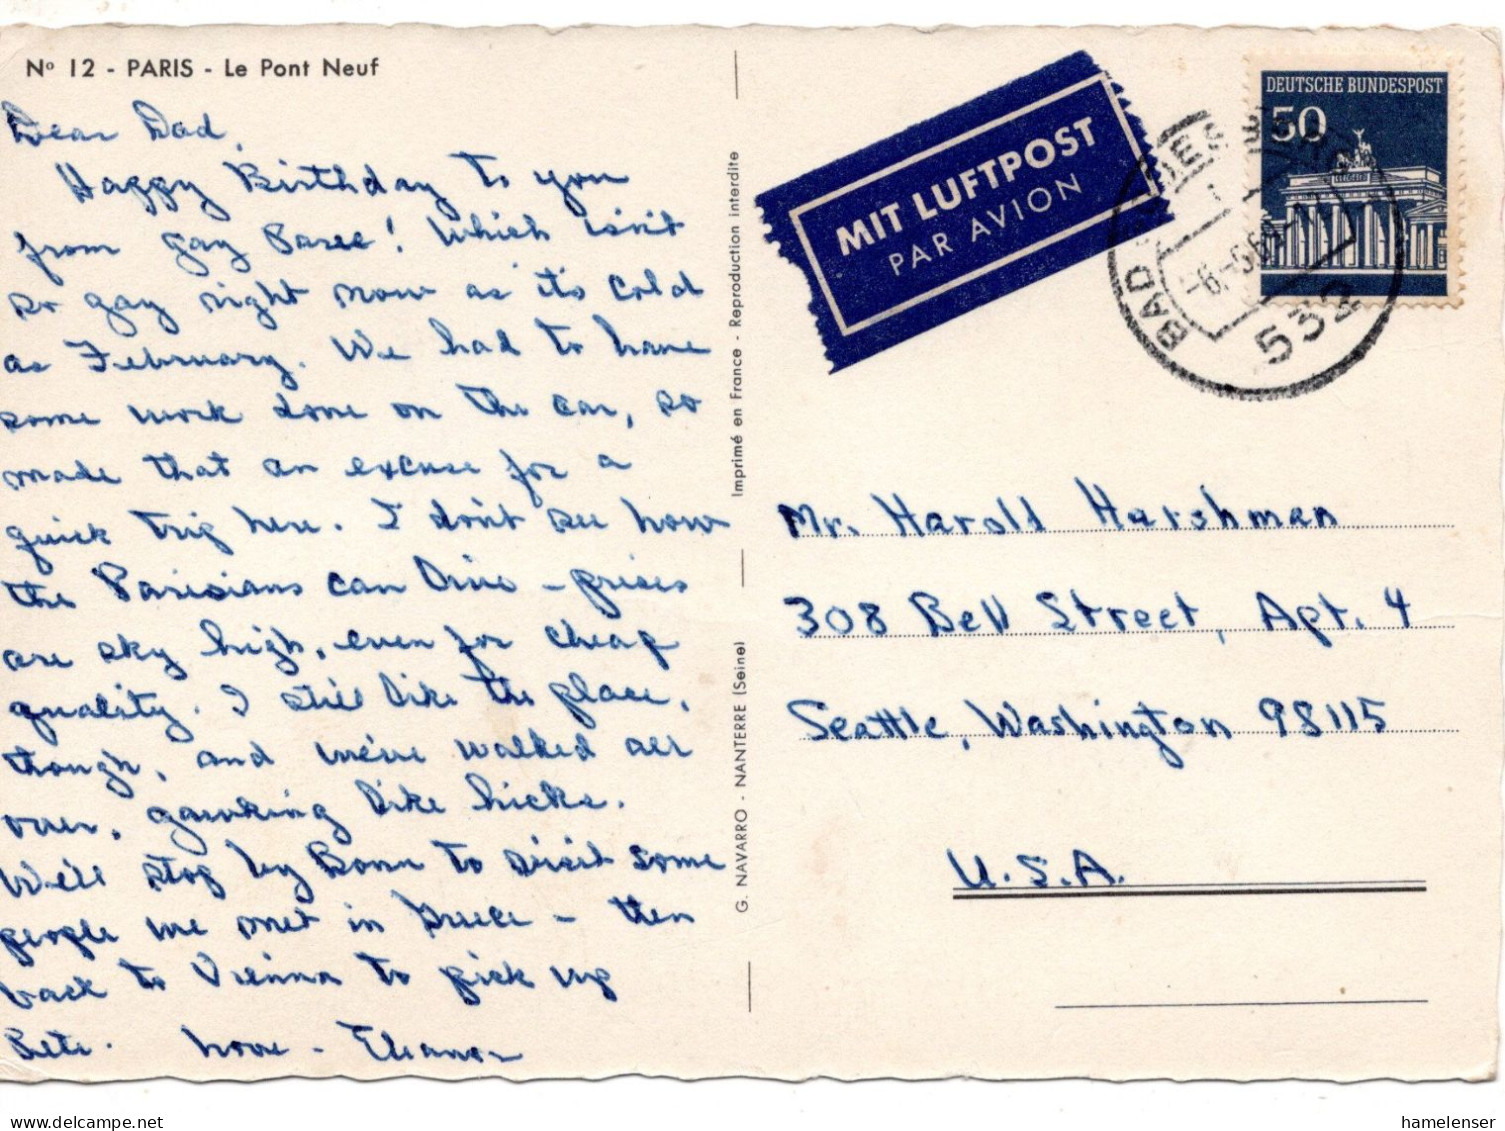 Nº 12 - PARIS - Le Pont Neuf
Dear Dad,
Happy Birthday to you
from gay Paree! Which isn't
so gay right now as it's cold
as February. We had to have
some work done on the car, so
made that an excuse for a
quick trip here. I don't see how
the Parisians can live - prices
are sky high, even for cheap
quality. I still like the place,
though, and we've walked all
over, gawking like hicks.
We'll stop by Bonn to visit some
people we met in Greece - then
back to Vienna to pick up
Love - Eleanor
Imprimé en France - Reproduction interdite
G. NAVARRO - NANTERRE (Seine)
MIT LUFTPOST
PAR AVION
DEUTSCHE BUNDESPOST
50
BAD
532
Mr. Harold Harshman
308 Bell Street, Apt. 4
Seattle, Washington 98115
U.S.A.
hamelenser